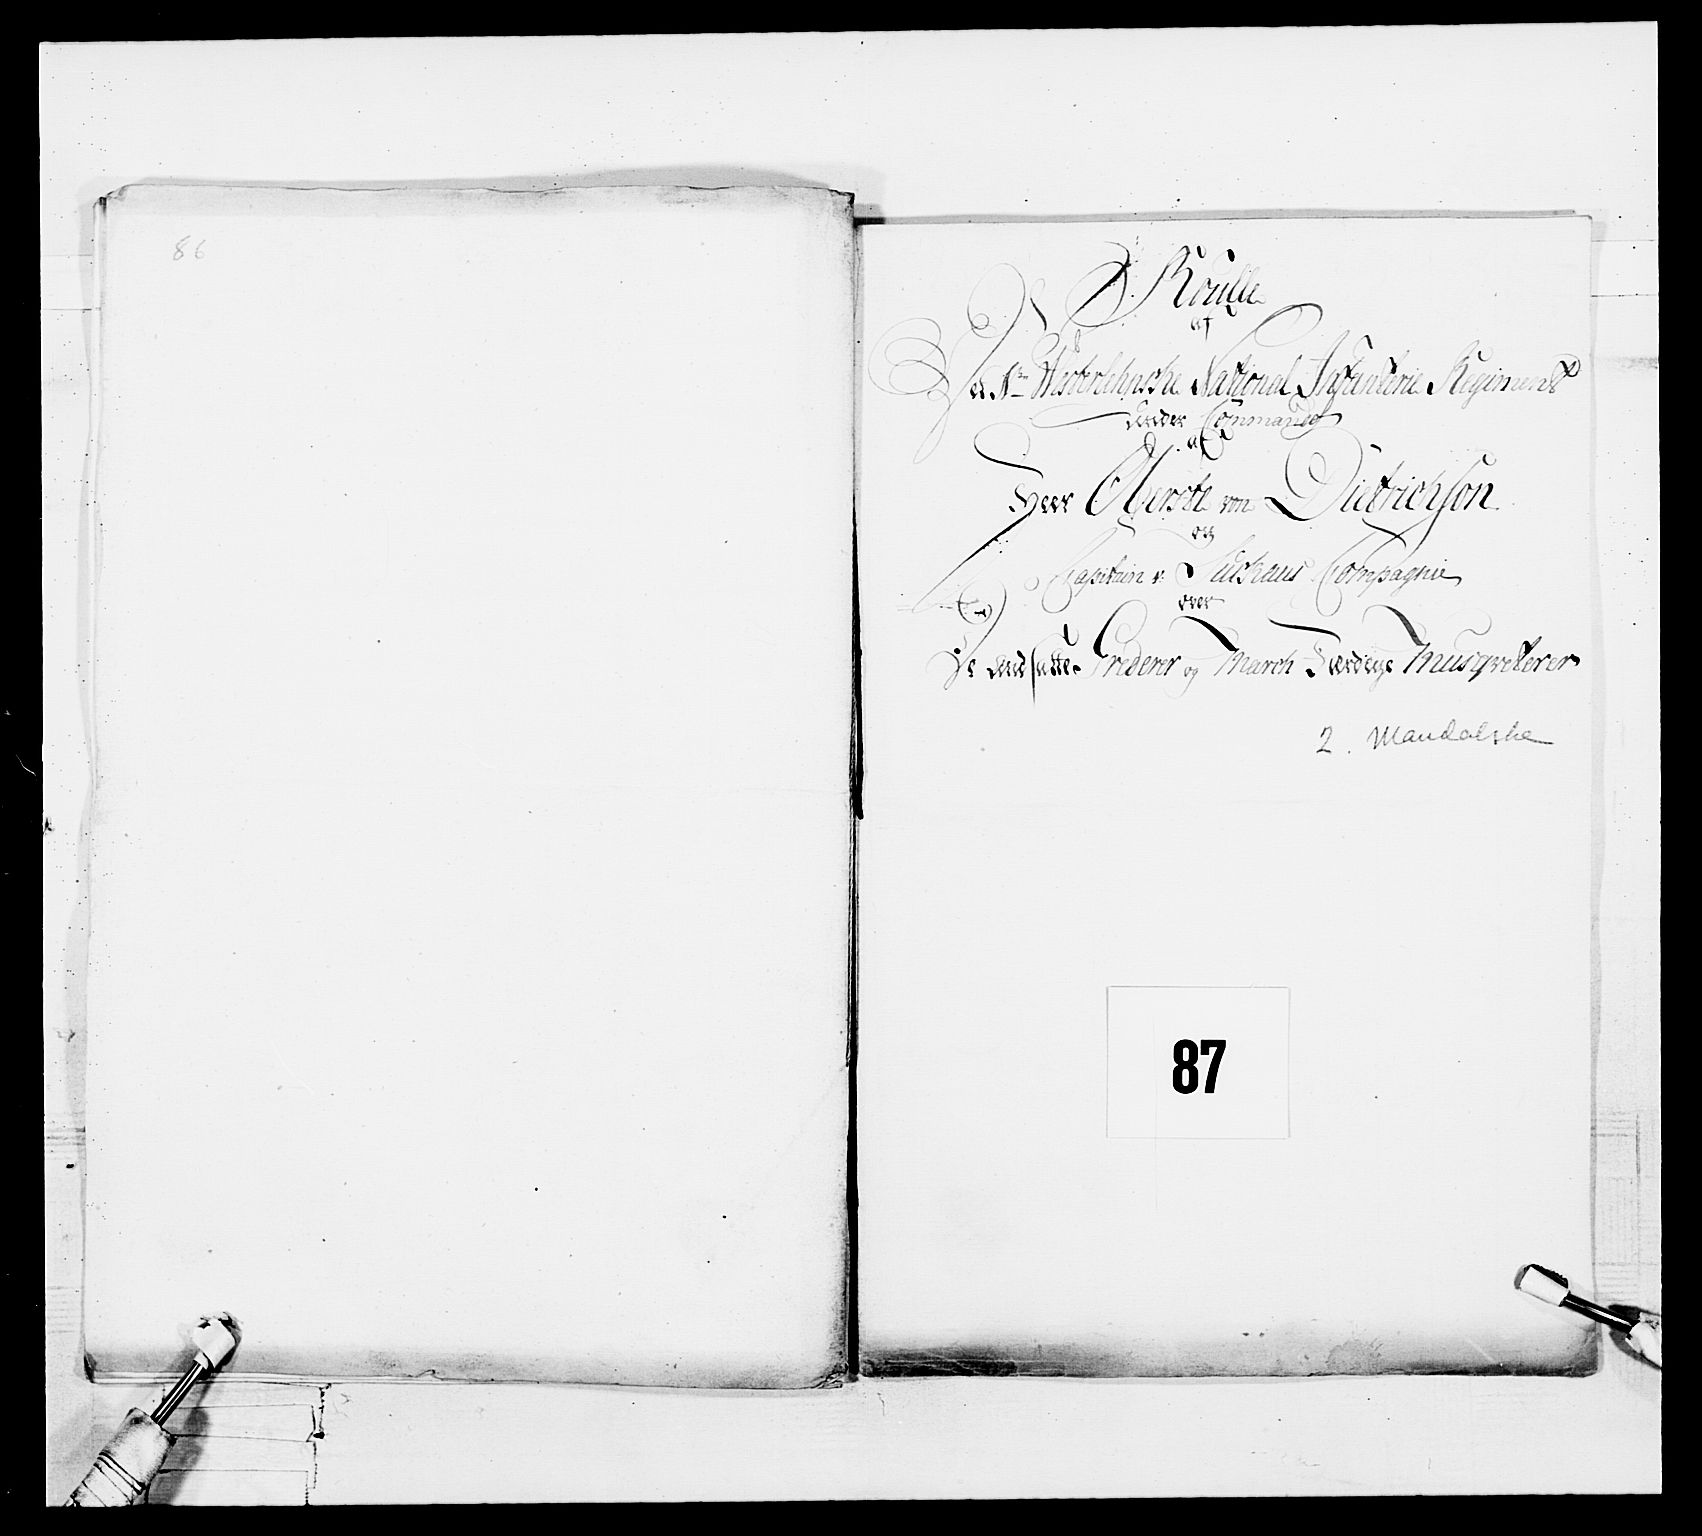 86
Roulle
af
Det 1ste Westerlehnske National Infanterie Regiment
under Commando
af
Herr Oberste von Diettrichson
og
Capitain v. Compagnie
over
De Andsatte og March Færdige Musqveterer
2. Mandalske
87